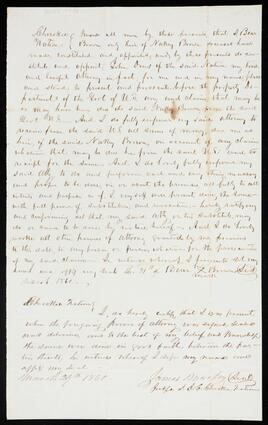 Cherokee } Know all men by these presents that I Bear
Nation } Brown only heir of Nelly Brown deceased have
made constituted and appointed, and by these presents do con-
stitute and appoint John Drew of the said Nation my true
and lawful Attorney in fact for me and in my name place
and stead, to present and prosecute before the proper De-
partment of the Govt of U.S. any and all claims that may be
due me from the
Govt U.S. And I do fully empower my said attorney to
receive from the said U.S. all sums of money due me as
heir of the said Nelly Brown, on account of any claims
whatever that may be due from the said U.S. and to
receipt for the same. And I do hereby fully empower my
said Atty to do and perform each and every thing necessary
and proper to be done in or about the premises as fully to all
intents and purposes as if I myself were present doing the same
with full power of substitution, and revocation hereby ratifying
and confirming all that my said Atty or his substitute, may
do or cause to be done by virtue hereof. And I do hereby
revoke all other powers of Attorney granted by me previous
to this date to any person or persons whatever for the prosecution
of my said claims. In witness whereof I hereunto set my
hand and affix my seal the 29th d
March 1860
Bear his X mark Brown Seal
Cherokee Nation }
I, do hereby certify that I was present
when the foregoing Power of Attorney was signed, sealed
and delivered and to the best of my belief and knowledge
the same was done in good faith between the par-
ties thereto. In witness whereof I sign my name and
affix my seal
March 29th 1860
James